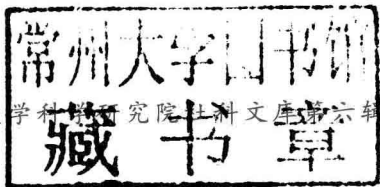 常州大学图书馆
学科学研究院社科文库第六辑
藏书章